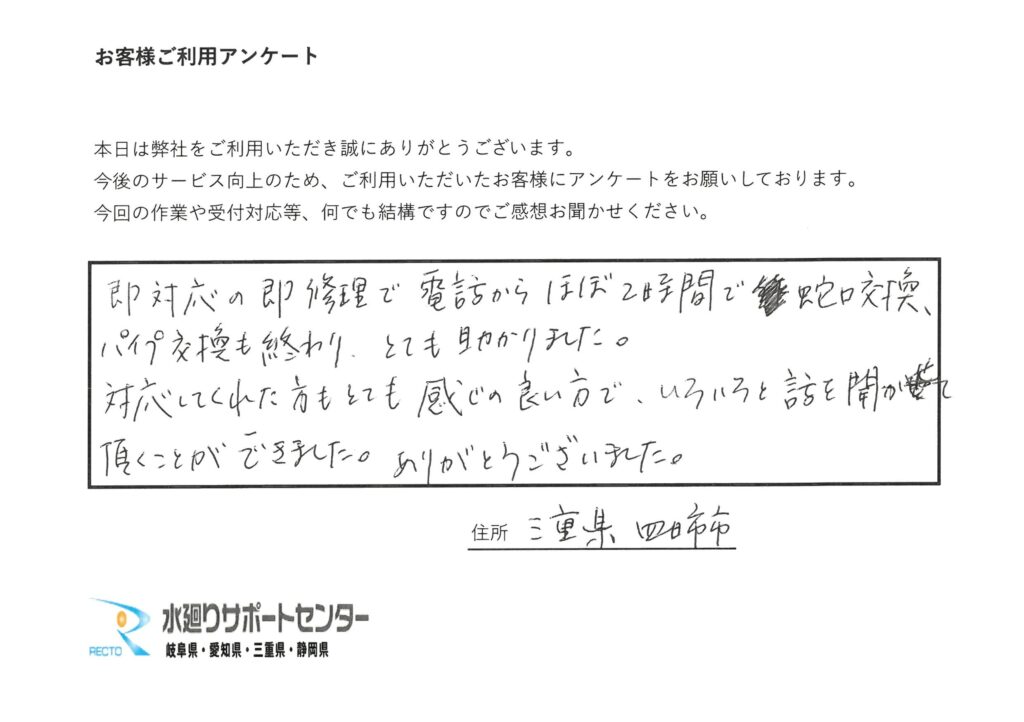 お客様ご利用アンケート
本日は弊社をご利用いただき誠にありがとうございます。
今後のサービス向上のため、ご利用いただいたお客様にアンケートをお願いしております。
今回の作業や受付対応等、何でも結構ですのでご感想お聞かせください。
即対応の即修理で電話からほぼ2時間で蛇口交換、
パイプ交換も終わり、とても助かりました。
対応してくれた方もとても感じの良い方で、いろいろと話を聞かせて
頂くことができました。ありがとうございました。
住所 三重県 四日市市
RECTO 水廻りサポートセンター
岐阜県・愛知県・三重県・静岡県